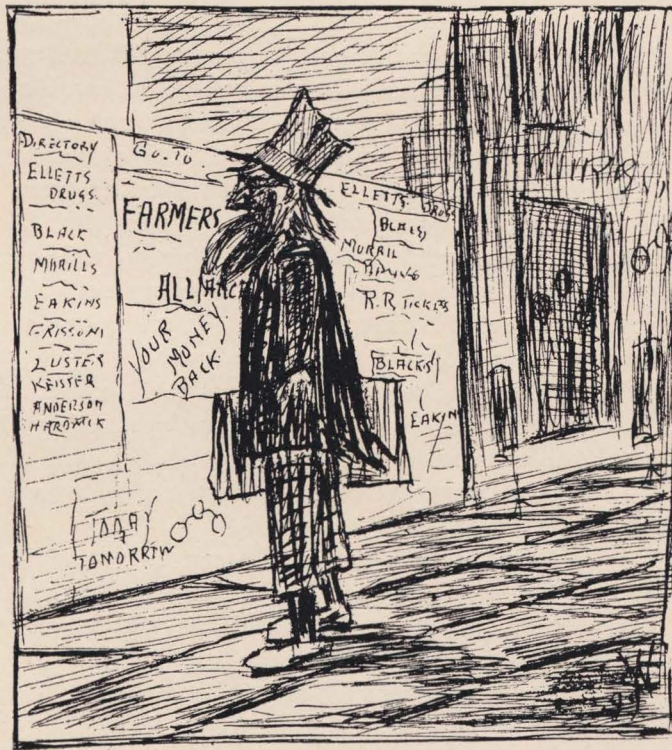 DIRECTORY
ELLETTS
DRUGS.
BLACK
MURILLS
EAKINS
GRISSOM
LUSTER
KEISTER
ANDERSON
HARDWICK
GO.TO.
FARMERS
ALLIANCE
YOUR
MONEY
BACK
TODAY
&
TOMORROW
ELLETTS DRUGS
BLACKS
MURRIL
R.R TICKETS
BLACKS
EAKIN